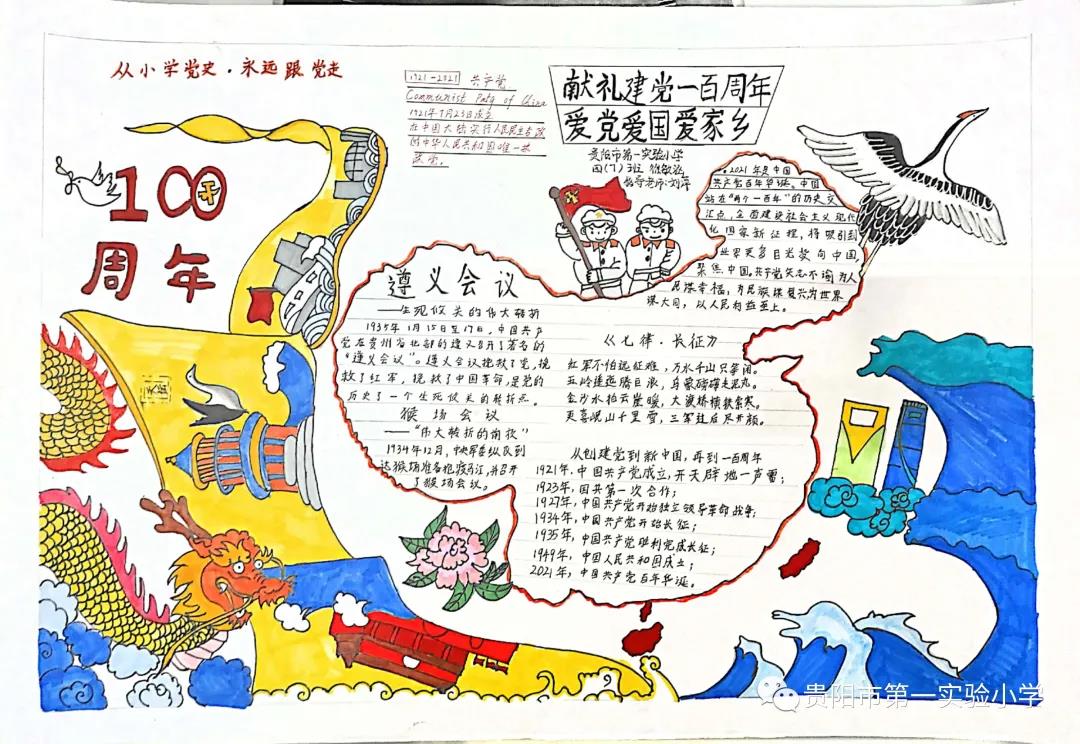 从小学党史·永远跟党走
100
周年
1921-2021 共产党
Communist Paty of China
1921年7月23日成立
在中国大陆实行人民民主专政
的中华人民共和国唯一执
政党。
献礼建党一百周年
爱党爱国爱家乡
贵阳市第一实验小学
四(7)班
指导老师:刘萍
2021年是中国
共产党百年华诞。中国
站在“两个一百年”的历史交
汇点,全面建设社会主义现代
化国家新征程,将吸引到
世界更多目光投向中国,
聚焦中国,共产党矢志不渝为人
民谋幸福,为民族谋复兴,为世界
谋大同,以人民利益至上。
遵义会议
——生死攸关的伟大转折
1935年1月15日至17日,中国共产
党在贵州省北部的遵义召开了著名的
“遵义会议”。遵义会议挽救了党,挽
救了红军,挽救了中国革命,是党的
历史了一个生死攸关的转折点。
猴场会议
——“伟大转折的前夜”
1934年12月,中央军委纵队到
达猴场准备抢渡乌江,并召开
了猴场会议。
《七律·长征》
红军不怕远征难,万水千山只等闲。
五岭逶迤腾巨浪,乌蒙磅礴走泥丸。
金沙水拍云崖暖,大渡桥横铁索寒。
更喜岷山千里雪,三军过后尽开颜。
从创建党到新中国,再到一百周年
1921年,中国共产党成立,开天辟地一声雷;
1923年,国共第一次合作;
1927年,中国共产党开始独立领导革命战争;
1934年,中国共产党开始长征;
1935年,中国共产党胜利完成长征;
1949年,中国人民共和国成立;
2021年,中国共产党百年华诞。
贵阳市第一实验小学